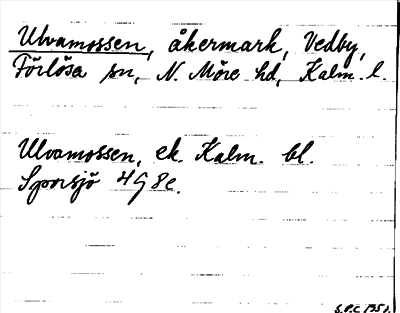 Ulvamossen, åkermark, Vedby,
Förlösa sn, N. Möre hd, Kalm. l.
Ulvamossen, ek. Kalm. bl.
Sporsjö 4G 8e.